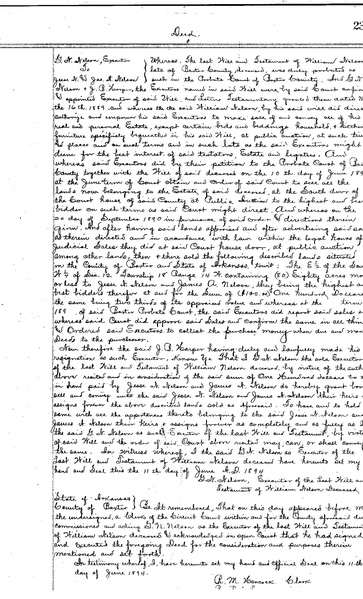 23
Deed
G. N. Nelson, Executor
To
Jesse N & Jas A Nelson
Whereas, The last Will and Testament of William Nelson
late of Baxter County deceased, was duly probated as
such in the Probate Court of Baxter County. And G. N.
Nelson & J. D. Harper, the Executors named in said Will were by said Court
appointed Executors of said Will, and Letters Testamentary granted them dated
the 16th 1889. and whereas the said William Nelson, by his said will did direct
authorize and empower his said Executors to make sale of and convey all of his
real and personal Estate, except certain beds and beddings household & kitchen
furniture specifically bequeathed in his said Will, at public auction, at such time
& places and on such terms and in such lots as the said Executors might
deem for the best interest of said Testators Estate and legatees. And
whereas said Executors did by their petition to the Probate Court of
County together with the Will of said deceased on the 10th day of June
at the June term of Court obtain and Order of said Court to sell all the
lands now belonging to the Estate of said deceased at the South door of
the Court house of said County at Public Auction to the highest and
bidder on such terms as said Court might direct. And whereas on the
20 day of September 1890 in pursuance of said order & directions therein
given. And after having said lands appraised and after advertising said
as therein directed and in accordance with law within the legal hours of
Judicial Sales they did at said Court house door, at public auction
among other lands, then & there sold the following described lands situated
in the County of Baxter and State of Arkansas, To wit: The
of Sec. 12 Township 18 Range 14 containing (80) Eighty acres more
or less to Jesse N. Nelson and James A. Nelson, they being the highest and
best bidders therefor at and for the sum of One Hundred
the same being two thirds of its appraised value and whereas at the term
189 . of said Baxter Probate Court, the said Executors did report said sales
whereas said Court did approve said sales and confirm the same in all things
& Ordered said Executors to collect the purchase money when due and make
Deeds to the purchaser.
Now therefore the said J. D. Harper having duly and lawfully made his
resignation as such Executor. Know Ye That I G. N. Nelson the sole Executor
of the last Will and Testament of William Nelson deceased by virtue of the
above recited and in consideration of the said sum of One Hundred dollars to
in hand paid by Jesse N. Nelson and James A. Nelson do hereby grant
sell and convey unto the said Jesse N. Nelson and James A. Nelson their heirs
assigns forever the above described lands sold as aforesaid. To have and to hold
same with all the appurtenances thereto belonging to the said Jesse N. Nelson and
James A. Nelson their Heirs & assigns forever as completely and as fully as
the said G. N. Nelson as such Executor of the last Will and Testament, by virtue
of said Will and the order of said Court above recited may, can, or shall convey
the same. In witness whereof, I the said G. N. Nelson as Executor of the
Last Will and Testament of William Nelson deceased have hereunto set my
hand and Seal this the 11th day of June A.D. 1894
G. N. Nelson, Executor of the Last Will and
Testament of William Nelson Deceased.
State of Arkansas
County of Baxter Be it remembered, That on this day appeared before me
the undersigned, a Clerk of the Circuit Court within and for the County aforesaid
commissioned and acting G. N. Nelson as the Executor of the last Will and Testament
of William Nelson deceased & acknowledged in open Court that he had signed
and executed the foregoing Deed for the consideration and purposes therein
mentioned and set forth.
In testimony whereof, I have hereunto set my hand and Official Seal on this 11th
day of June 1894.
R. M. Hancock, Clerk